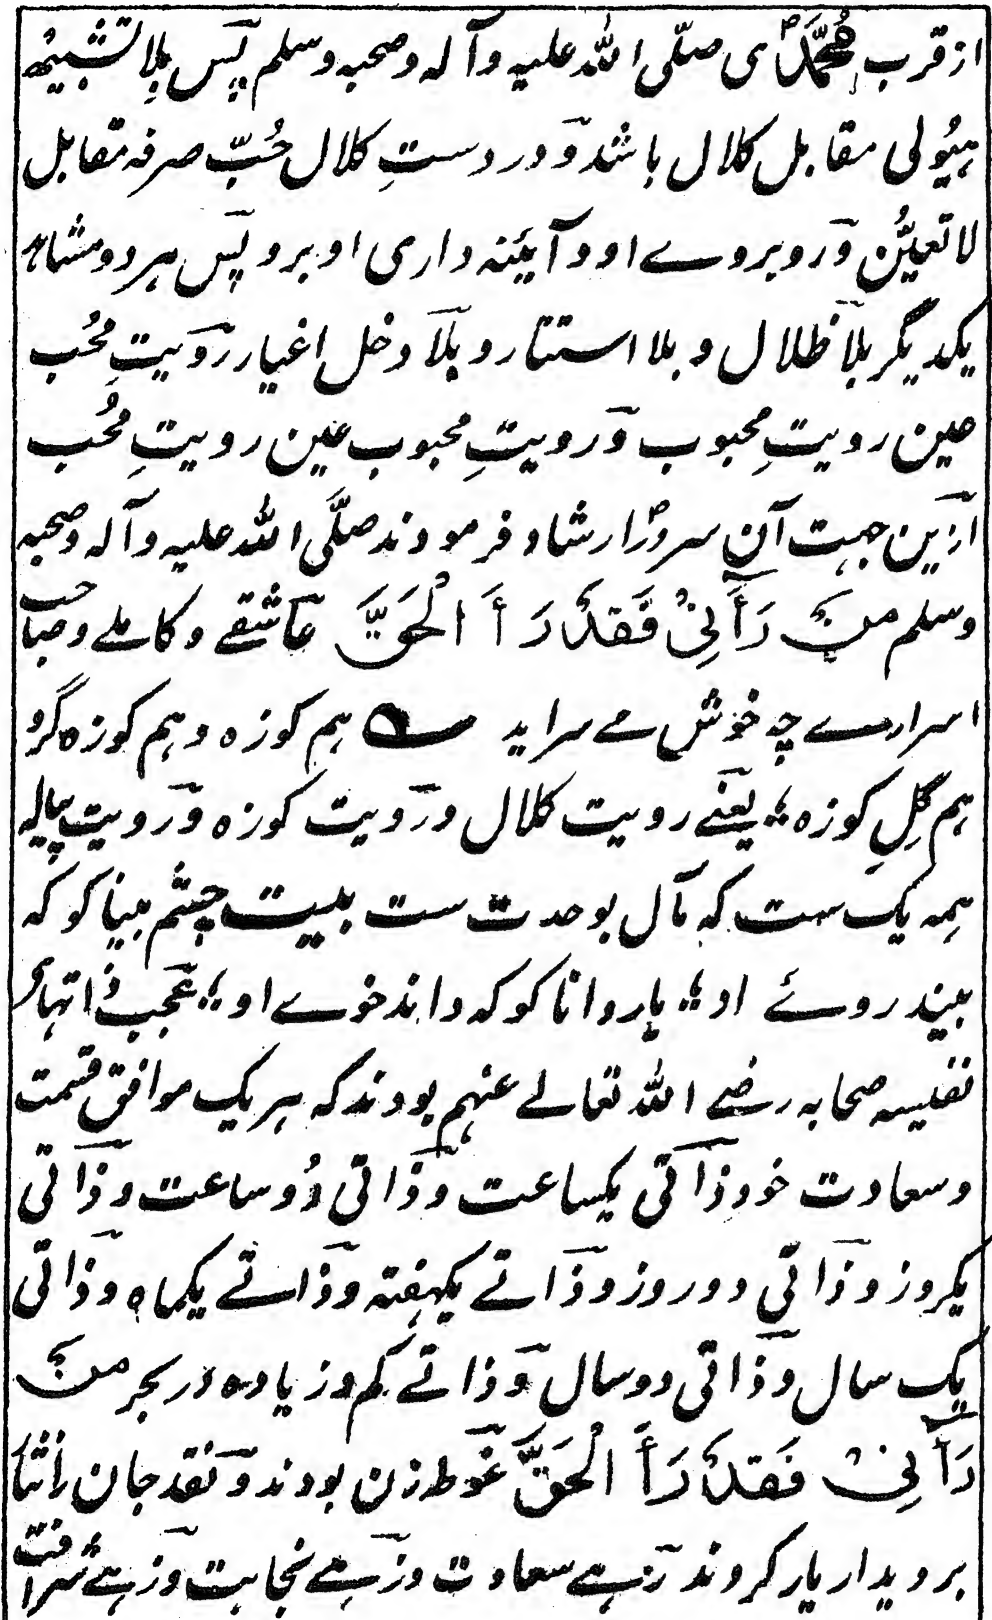 از قرب مُحمَّدؐ ی صلّی اللّٰه علیه و آله و صحبه و سلم پس بلا تشبیه
ہیُولی مقابل کلال باشد و در دستِ کلال حُبّ صرفہ مقابل
لا تعیُّن و روبروے او و آئینه داری او برو پس ہر دو مشاہد
یکدیگر بلا ظلال و بلا استتار و بلا دخل اغیار رویتِ مُحُب
عین رویتِ محبوب و رویتِ محبوب عین رویتِ مُحُب
ازین جہت آن سرورؐ ارشاد فرمودند صلَّی اللّٰه علیه و آله و صحبه
و سلم مَنْ رَأَٰنِیْ فَقَدْ رَأَ الْحَقَّ عاشقے و کاملے و صاحب
اسرارے چه خوش مے سراید ؎ ہم کوزه و ہم کوزه گر و
ہم گِلِ کوزه ؛؛ یعنے رویت کلال و رویت کوزه و رویت پیاله
ہمه یک ست که مآل بوحدت ست بیت چشم بینا کو که
بیند روئے او ؛؛ یار دانا کو که داند خوے او ؛؛ عجب ذاتهای
نفیسه صحابه رضے اللّٰه تعالے عنہم بودند که ہر یک موافق قسمت
و سعادت خود ذاتی یکساعت و ذاتی دُو ساعت و ذاتی
یکروز و ذاتی دو روز و ذاتے یکہفته و ذاتے یکماه و ذاتی
یک سال و ذاتی دو سال و ذاتے کم و زیاده در بحر مَنْ
رَأَٰنِیْ فَقَدْ رَأَ الْحَقَّ غوطه زن بودند و نقد جان را نثار
بر دیدار یار کردند زہے سعادت و زہے نجابت و زہے شرافت